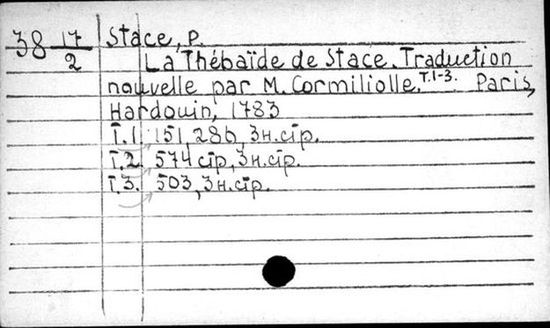 38 17/2 Stace, P.
La Thébaïde de Stace. Traduction
nouvelle par M. Cormiliolle. T.1-3. Paris,
Hardouin, 1783
T.1. 151, 286, 3н.стр.
T.2. 574 стр, 3н.стр.
T.3. 503, 3н.стр.